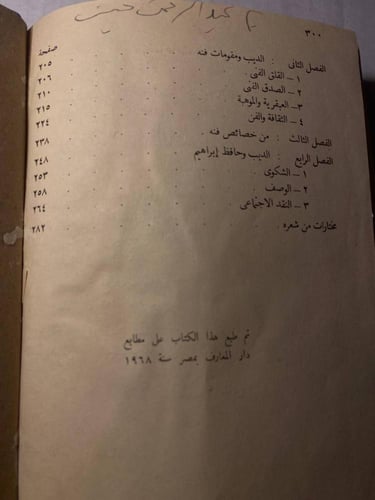 م عبد الرحمن
٣٠٠
صفحة
الفصل الثانى : الديب ومقومات فنه . . . . ٢٠٥
١ – القلق الفنى . . . . . ٢٠٦
٢ – الصدق الفنى . . . . . ٢١٠
٣ – العبقرية والموهبة . . . . . ٢١٥
٤ – الثقافة والفن . . . . . ٢٢٤
الفصل الثالث : من خصائص فنه . . . . ٢٣٨
الفصل الرابع : الديب وحافظ إبراهيم . . . . ٢٤٨
١ – الشكوى . . . . . ٢٥٣
٢ – الوصف . . . . . ٢٥٨
٣ – النقد الاجتماعى . . . . . ٢٦٤
مختارات من شعره . . . . . ٢٨٢
تم طبع هذا الكتاب على مطابع
دار المعارف بمصر سنة ١٩٦٨